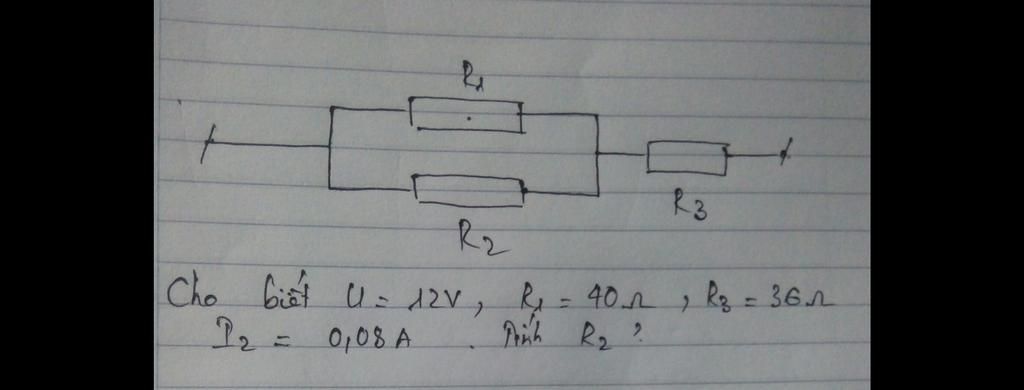 R1
R2
R3
Cho biết U = 12V, R1 = 40Ω, R3 = 36Ω
I2 = 0,08A. Tính R2?